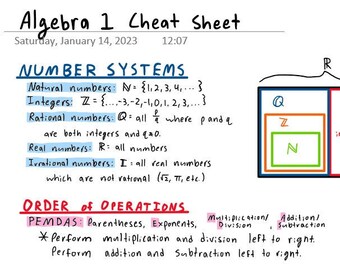 Algebra 1 Cheat Sheet
Saturday, January 14, 2023 12:07
NUMBER SYSTEMS
Natural numbers: ℕ = {1, 2, 3, 4, ...}
Integers: ℤ = {...,-3,-2,-1,0,1,2,3,...}
Rational numbers: ℚ = all p/q where p and q
are both integers and q≠0.
Real numbers: ℝ = all numbers
Irrational numbers: 𝕀 = all real numbers
which are not rational (√2, π, etc.)
ℝ
ℚ
ℤ
ℕ
ORDER of OPERATIONS
PEMDAS: Parentheses, Exponents, Multiplication/Division, Addition/Subtraction
* Perform multiplication and division left to right.
Perform addition and subtraction left to right.